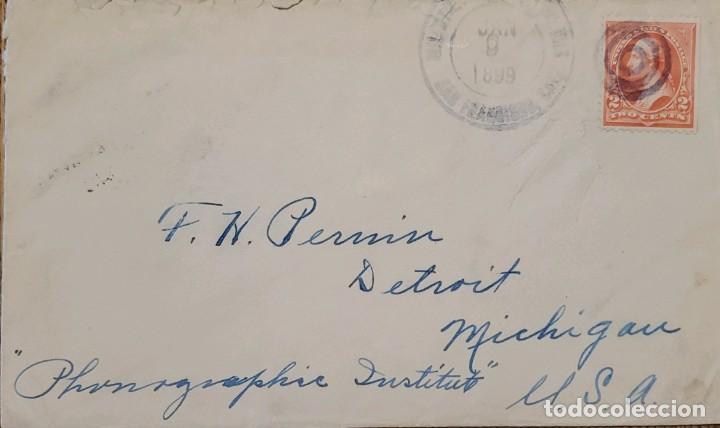 JAN
9
1899
SAN FRANCISCO
2 2
TWO CENTS
F. H. Pernin
Detroit
Michigan
"Phonographic Institut"
U.S.A.
todocoleccion.net